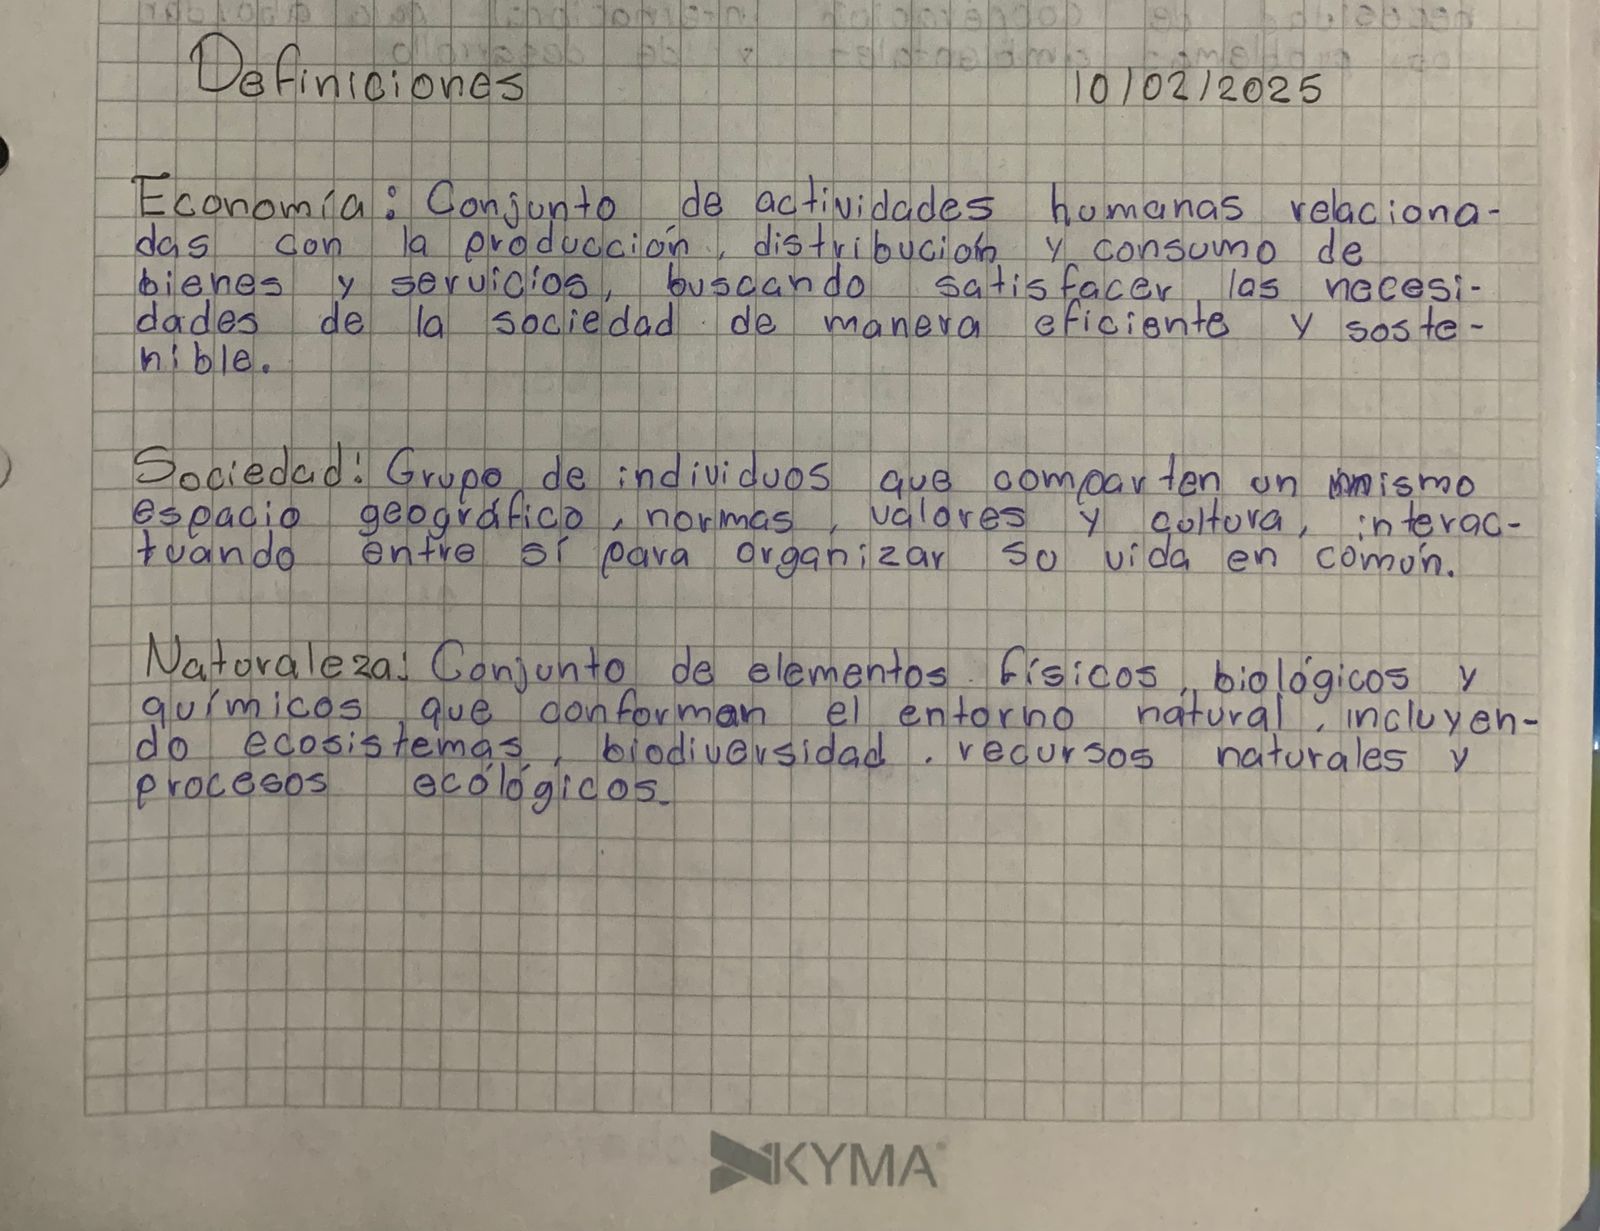 Definiciones 10/02/2025
Economía: Conjunto de actividades humanas relaciona-
das con la producción, distribución y consumo de
bienes y servicios, buscando satisfacer las necesi-
dades de la sociedad de manera eficiente y soste-
nible.
Sociedad: Grupo de individuos que comparten un mismo
espacio geográfico, normas, valores y cultura, interac-
tuando entre sí para organizar su vida en común.
Naturaleza: Conjunto de elementos físicos, biológicos y
químicos que conforman el entorno natural, incluyen-
do ecosistemas, biodiversidad, recursos naturales y
procesos ecológicos.
KYMA